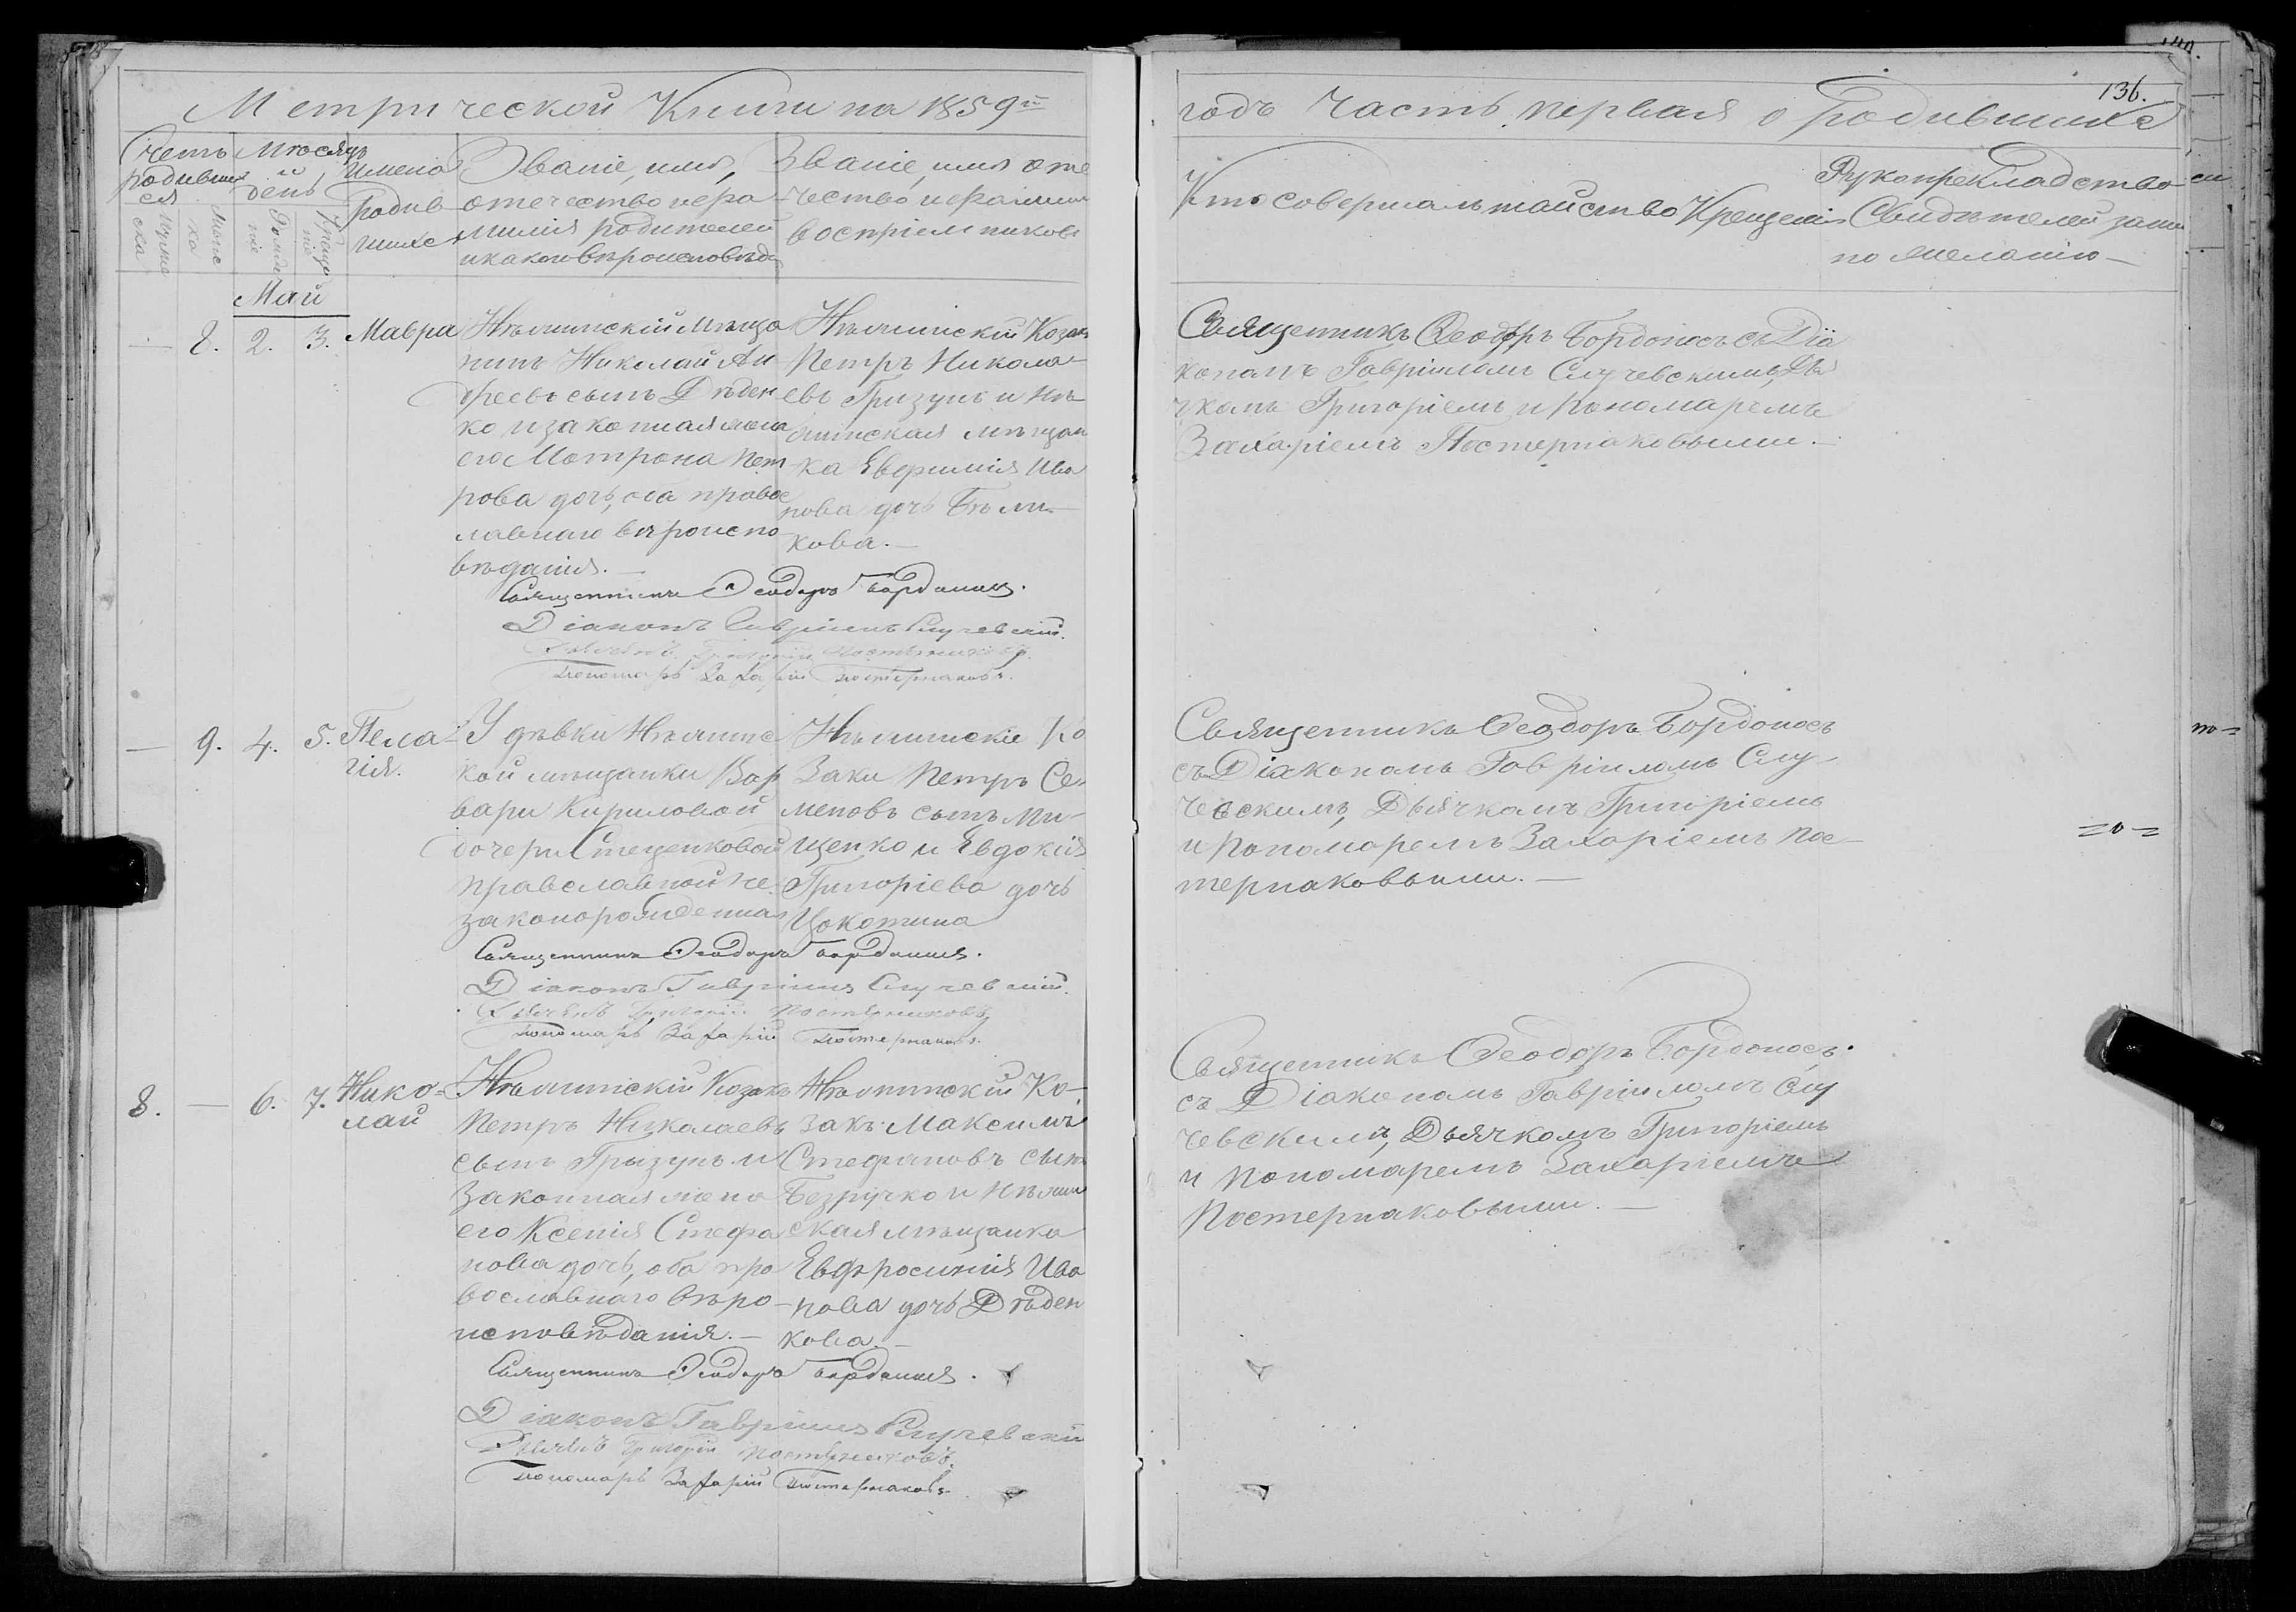 136.
Метрической Книги на 1859й
годъ часть первая о родившихся
Счетъ родившихся
Мужеска
Женска
Мѣсяцъ и день
Рожденіе
Крещеніе
Имена
Родив
шихс
Званіе, имя,
отечество и фа
милія родителей
и какого вѣроисповѣд
Званіе, имя оте
чество и фамилія
воспріемниковъ
Кто совершалъ таинство Крещенія
Рукоприкладство
Свидѣтелей запи
си
по желанію
Май
— 8. 2. 3. Мавра
Нѣжинскій Мѣща
нинъ Николай Ан
дреевъ сынъ Дѣден
ко и законная жена
его Матрона Пет
рова дочь, оба правос
лавнаго вѣроиспо
вѣданія.—
Нѣжинскій Козакъ
Петръ Никола
евъ Гризунъ и Нѣ
жинская мѣщан
ка Евфимія Ива
нова дочь Бѣли
кова.—
Священникъ Ѳеодоръ Бордоносъ съ Діа
кономъ Гавріиломъ Случевскимъ, Дья
чкомъ Григоріемъ и Пономаремъ
Захаріемъ Постернаковыми.—
Священникъ Ѳеодоръ Бордоносъ.
Діаконъ Гавріилъ Случевскій.
Дьячекъ Григорій Постернаковъ.
Пономарь Захарій Постернаковъ.
— 9. 4. 5. Пела
гія.
У дѣвки Нѣжинс
кой мѣщанки Вар
вары Кириловой
дочери Стеценковой
православной не
законорожденная
Нѣжинскіе Ко
заки Петръ Се
меновъ сынъ Ми
щенко и Евдокія
Григоріева дочь
Цокотина
Священникъ Ѳеодоръ Бордоносъ
съ Діякономъ Гавріиломъ Слу
чевскимъ, Дьячкомъ Григоріемъ
и Пономаремъ Захаріемъ Пос
тернаковыми.—
Священникъ Ѳеодоръ Бордоносъ.
Діаконъ Гавріилъ Случевскій.
Дьячекъ Григорій Постернаковъ
Пономарь Захарій Постернаковъ.
8. — 6. 7. Нико
лай
Нѣжинскій Козакъ
Петръ Николаевъ
сынъ Грызунъ и
Законная жена
его Ксенія Стефа
нова дочь, оба пра
вославнаго вѣро
исповѣданія.—
Нѣжинскій Ко
закъ Максимъ
Стефановъ сынъ
Безручко и Нѣжин
ская мѣщанка
Евфросинія Ива
нова дочь Дѣден
кова.—
Священникъ Ѳеодоръ Бордоносъ.
съ Діакономъ Гавріиломъ Слу
чевскимъ, Дьячкомъ Григоріемъ
и Пономаремъ Захаріемъ
Постернаковыми.—
Священникъ Ѳеодоръ Бордоносъ.
Діаконъ Гавріилъ Случевскій
Дьячекъ Григорій Постернаковъ.
Пономарь Захарій Постернаковъ